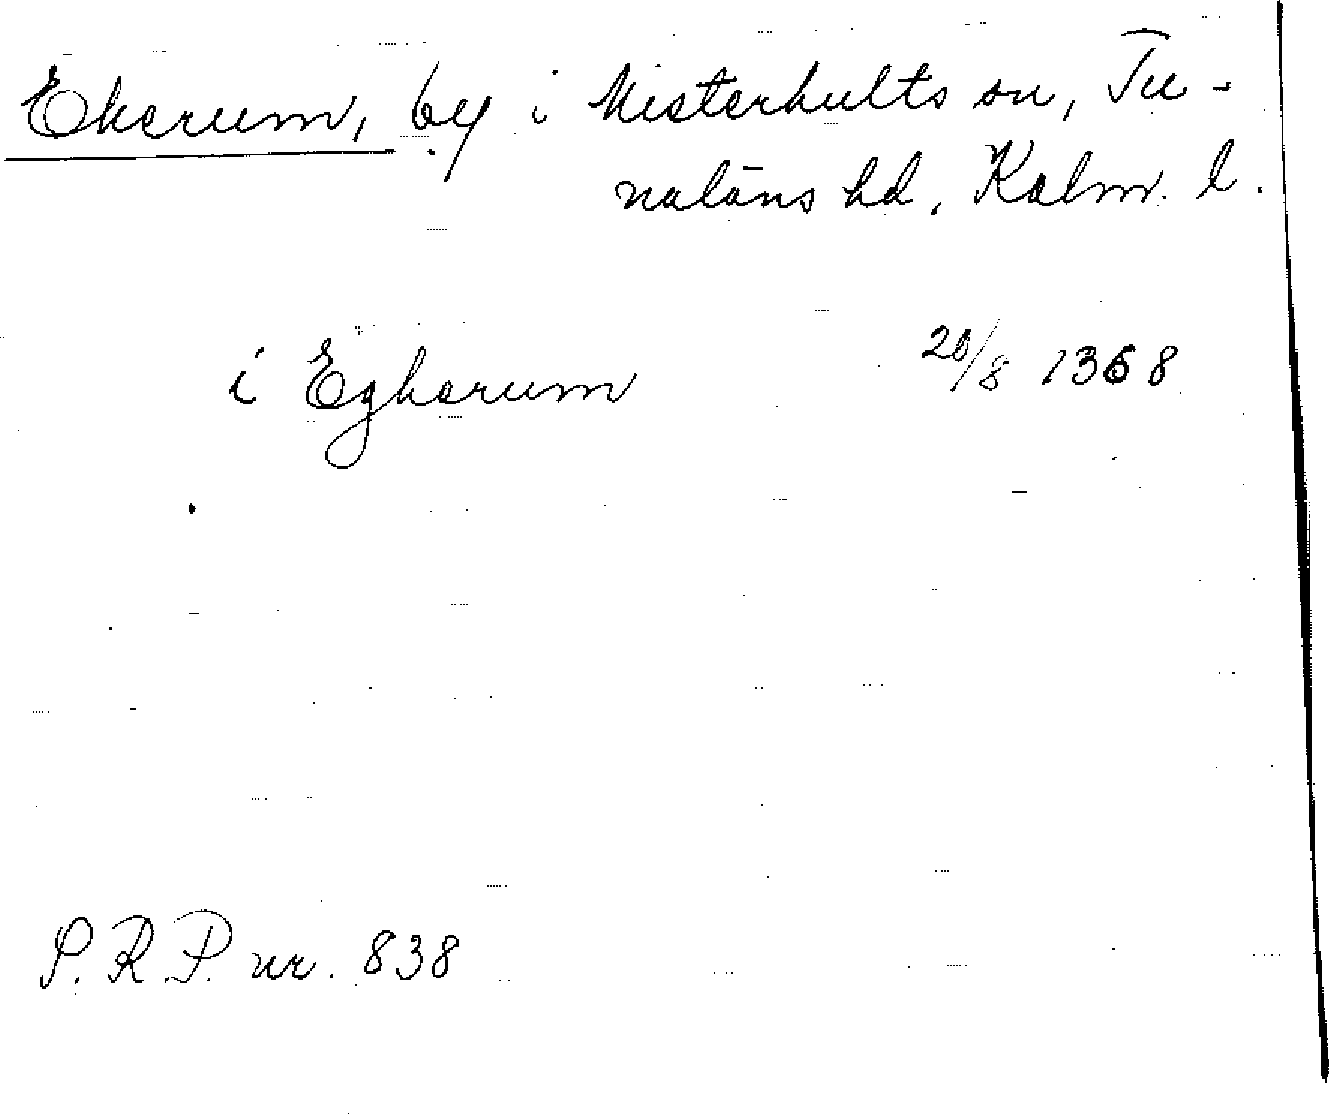 Ekerum, by i Misterhults sn, Tu-
naläns hd, Kalm. l.
i Egherum 20/8 1368
S.R.P. nr. 838